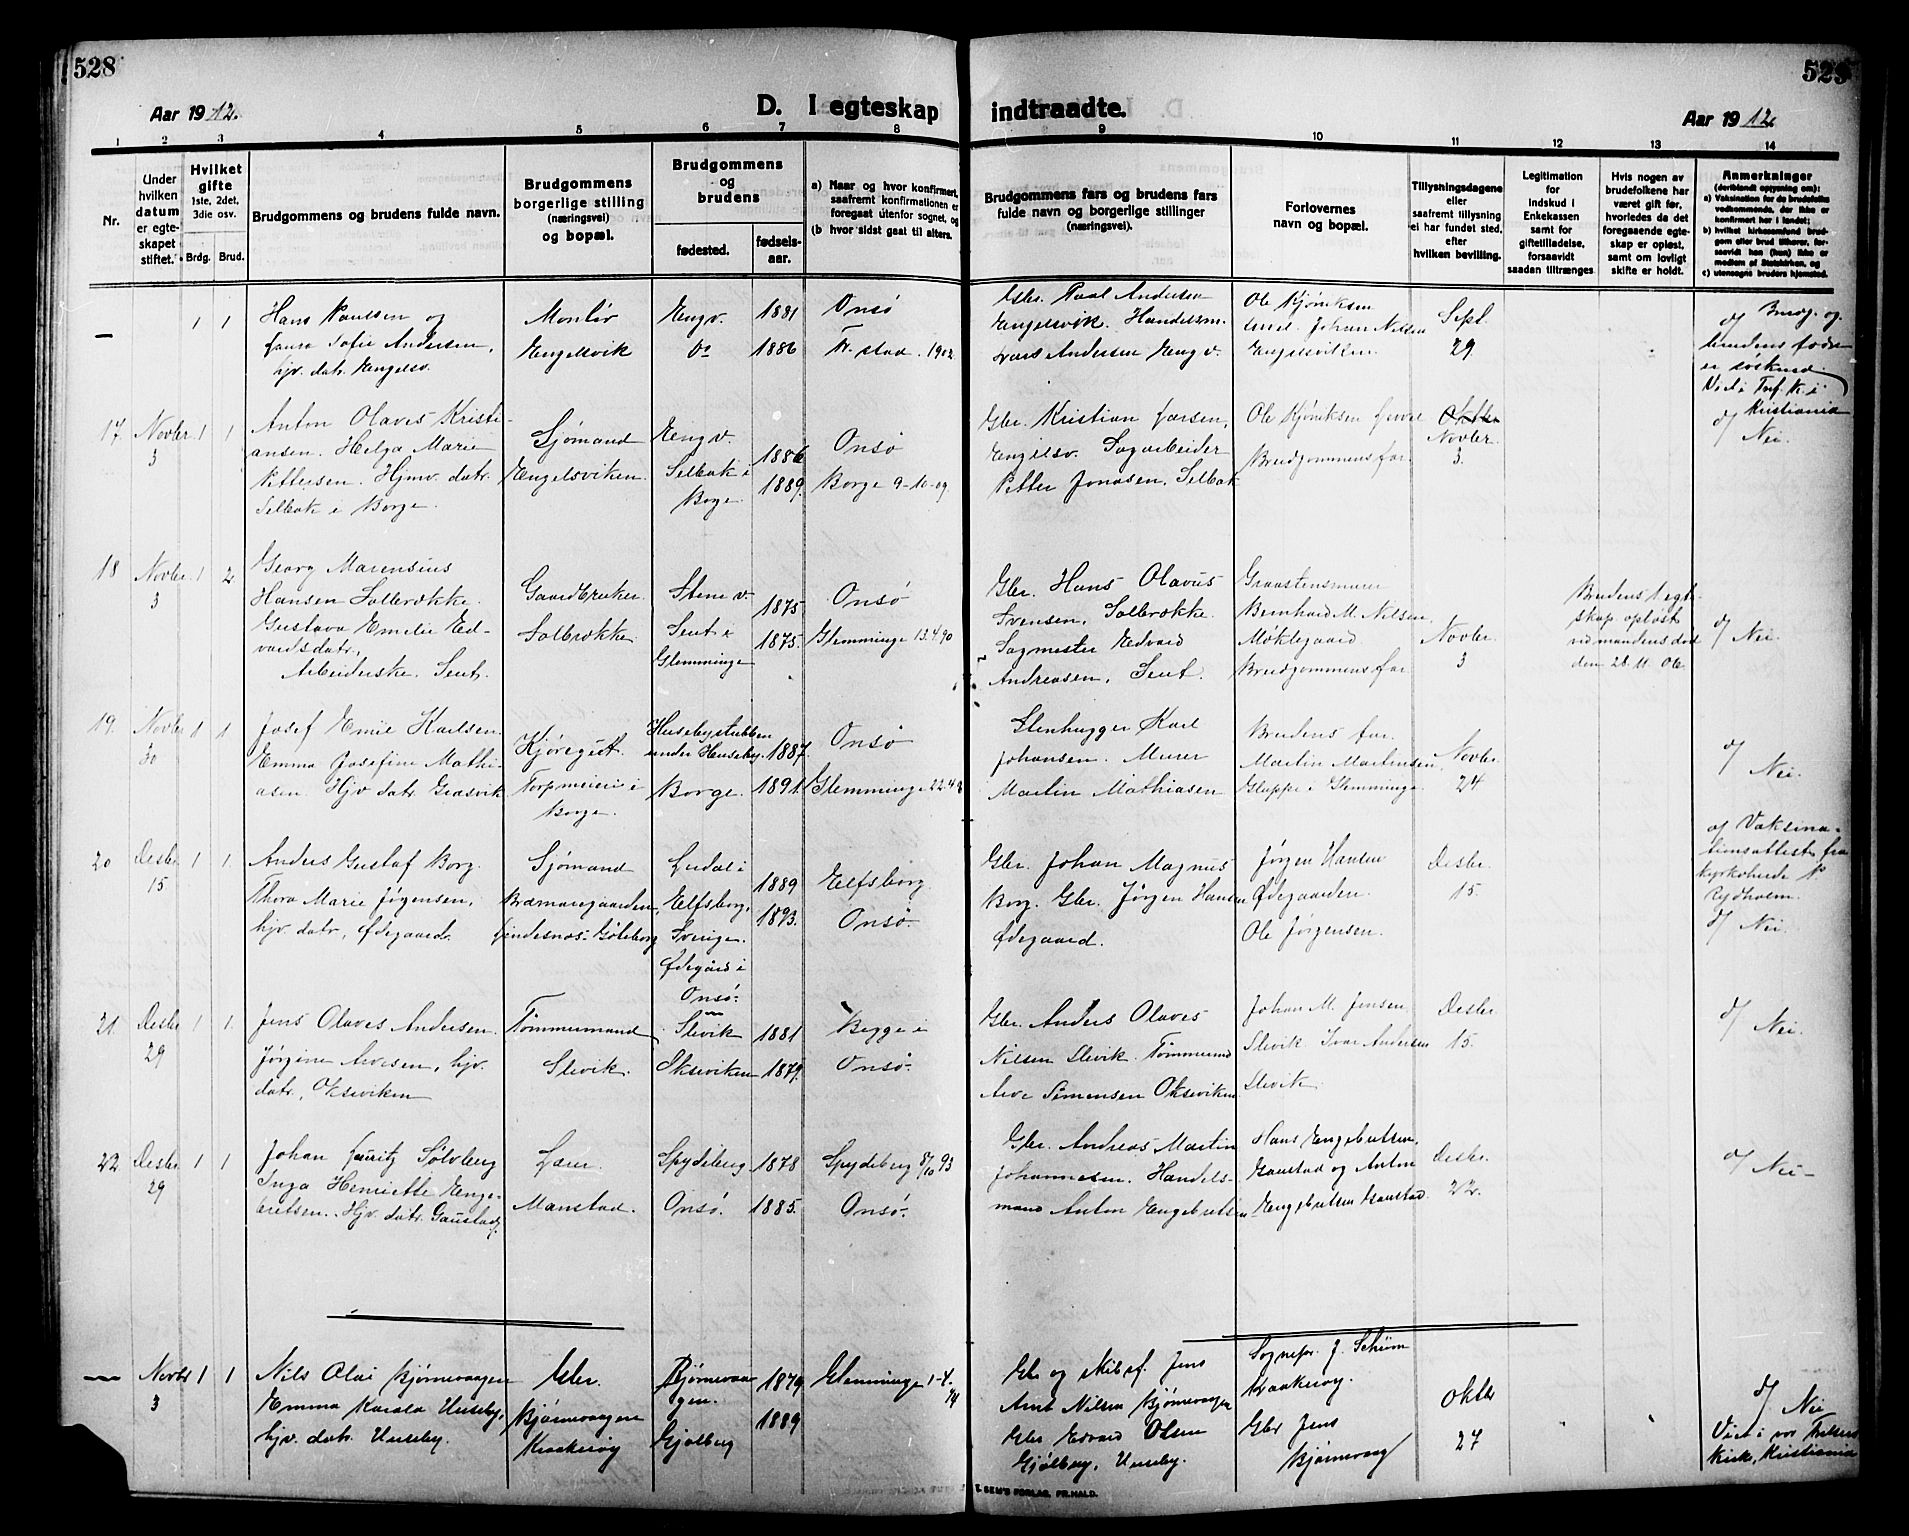 528
529
Aar 1912.
D. I egteskap indtraadte.
Aar 1912.
1 2 3 4 5 6 7 8 9 10 11 12 13 14
Nr.
Under hvilken datum er egteskapet stiftet.
Hvilket gifte 1ste, 2det, 3die osv.
Brdg. Brud.
Brudgommens og brudens fulde navn.
Brudgommens borgerlige stilling (næringsvei) og bopæl.
Brudgommens og brudens
fødested.
fødselsaar.
a) Naar og hvor konfirmert, saafremt konfirmationen er foregaat utenfor sognet, og
(b hvor sidst gaat til alters.
Brudgommens fars og brudens fars fulde navn og borgerlige stillinger (næringsvei).
Forlovernes navn og bopæl.
Tillysningsdagene eller saafremt tillysning ei har fundet sted, efter hvilken bevilling.
Legitimation for indskud i Enkekassen samt for giftetilladelse, forsaavidt saadan tiltrænges
Hvis nogen av brudefolkene har været gift før, hvorledes da det foregaaende egteskap er opløst, samt om lovligt skifte er holdt.
Anmerkninger
(deriblandt oplysning om):
a) Vaksination for de brudefolks vedkommende, der ikke er konfirmert her i landet;
b) hvilket kirkesamfund brudgom eller brud tilhører, forsaavidt han (hun) ikke er medlem af Statskirken, og
c) utensogns bruders hjemsted.
— 1 1
Hans Paulsen og
Laura Sofie Andersen,
hjv. datr. Engelsv.
Montør
Engelsvik
Engv.
Do
1881
1886
Onsø
Fr.stad. 1902
Gbr. Paal Andersen
Engelsvik. Handelsm.
Lars Andersen Engv.
Ole Kjønigsen
Johan Nilsen
Engelsviken
Sept.
29.
d/ Brudg. og
brudens fædre
er søskend.
Viet i Trf. K. i
Kristiania
17. Novbr 3 1 1
Anton Olaves Kristi-
ansen. Helga Marie
Pettersen. Hjmv. datr.
Selbak i Borge.
Sjømand
Engelsviken.
Engv.
Selbak i
Borge.
1886
1889.
Onsø
Borge 9-10-09
Gbr. Kristian Larsen,
Engelsv. Sagarbeider
Petter Jonasen, Selbak
Brudgommens far.
Novbr.
3.
d/ Nei.
18 Novbr. 3 1 2
Georg Marensius
Hansen Solbrække.
Gustava Emelie Ed-
vardsdatr.,
Arbeiderske. Seut.
Gaardbruker.
Solbrække
Stene v.
Seut i
Glemminge
1875
1875.
Onsø
Glemminge 13.4.90
Gbr. Hans Olavus
Svensen, Solbrække.
Sagmester Edvard
Andreasen, Seut.
Graastensmurer
Bernhard M. Nilsen,
Møklegaard
Brudgommens far
Novbr.
3
Brudens 1 egte-
skap opløst
ved mandens død
den 28.11.06
d/ Nei.
19. Novbr 30 1 1
Josef Emil Karlsen.
Emma Josefine Mathi-
asen. Hjv. datr. Græsvik
Kjøregut.
Torpmeieri i
Borge.
Husebystubben
under Huseby.
Borge.
1887.
1891.
Onsø
Glemminge 22.4.
Stenhugger Karl
Johansen. Murer
Martin Mathiasen
Brudens far.
Martin Martinsen,
Gluppe i Glemminge
Novbr.
24
d/ Nei.
20 Desbr 15 1 1.
Anders Gustaf Borg.
Thora Marie Jørgensen,
hjv. datr, Ødegaard.
Sjømand
Göteborg
i
Elfsborg,
Sverige.
Ødegård i
Onsø.
1889
1893.
Elfsborg.
Onsø.
Gbr. Johan Magnus
Borg. Gbr. Jørgen Hansen
Ødegaard.
Jørgen Hansen
Ødegaarden.
Ole Jørgensen.
Desbr.
15.
a/ Vaksina-
tionsattest fra
kyrkoherde P
Rydholm.
d/ Nei.
21. Desbr 29 1 1.
Jens Olaves Andersen.
Jørgine Arvesen, hjv.
datr., Oksviken
Tømmermand
Slevik.
Slevik
Oksviken
1881
1879.
Begge i
Onsø.
Gbr. Anders Olaves
Nilsen Slevik. Tømmermd
Arve Simensen Oksviken
Johan M. Jensen
Slevik Ivar Andersen
Slevik
Desbr.
15.
d/ Nei.
22 Desbr 29 1 1
Johan Lauritz Sølvberg
Inga Henriette Enge-
bretsen. Hjv. datr. Gaustad.
Lærer.
Manstad.
Spydeberg
Onsø.
1878
1885.
Spydeberg 8/10 93
Onsø.
Gbr. Andreas Martin
Johannesen. Handels-
mand Anton Engebretsen
Hans Engebretsen,
Gaustad og Anton
Engebretsen Gaustad.
Desbr.
22.
d/ Nei-
— Novbr 3 1 1
Nils Olai Bjørnevaagen
Emma Karola Huseby,
hjv. datr. Huseby.
Gbr.
Bjørnevaagen
Kraakerøy
Bjørnevaa-
gen.
Gjølberg
1879
1889
Glemminge 1-4-
94
Gbr og Jens
Arnt Nilsen Bjørnevaagen
Gbr Edvard Olsen
Gjølberg, Huseby.
Sognepr. J. Schiøm
Kraakerøy.
Gbr Jens
Bjørnevaag
Oktbr
27
d/ Nei
Viet i vor Frelsers
Kirke, Kristiania
E. SEM'S FORLAG, FR.HALD.